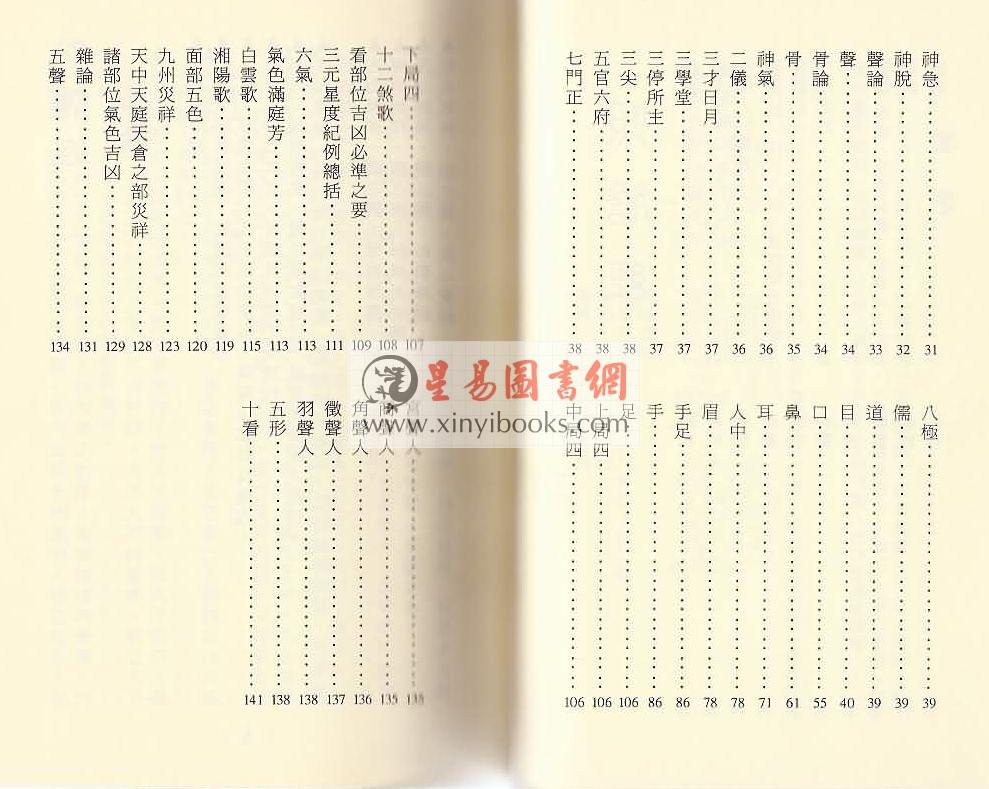 神急 31
神脫 32
聲論 33
聲 34
骨論 34
骨 35
神氣 36
二儀 36
三才日月 37
三學堂 37
三停所主 37
三尖 38
五官六府 38
七門正 38
八極 39
儒 39
道 39
目 40
口 55
鼻 61
耳 71
人中 78
眉 78
手足 86
手 86
足 106
上局四 106
中局四 106
下局四 107
十二煞歌 108
看部位吉凶必準之要 109
三元星度紀例總括 111
六氣 113
氣色滿庭芳 113
白雲歌 115
湘陽歌 119
面部五色 120
九州災祥 123
天中天庭天倉之部災祥 128
諸部位氣色吉凶 129
雜論 131
五聲 134
人
人 135
角聲人 136
徵聲人 137
羽聲人 138
五形 138
十看 141
星易圖書網
www.xinyibooks.com